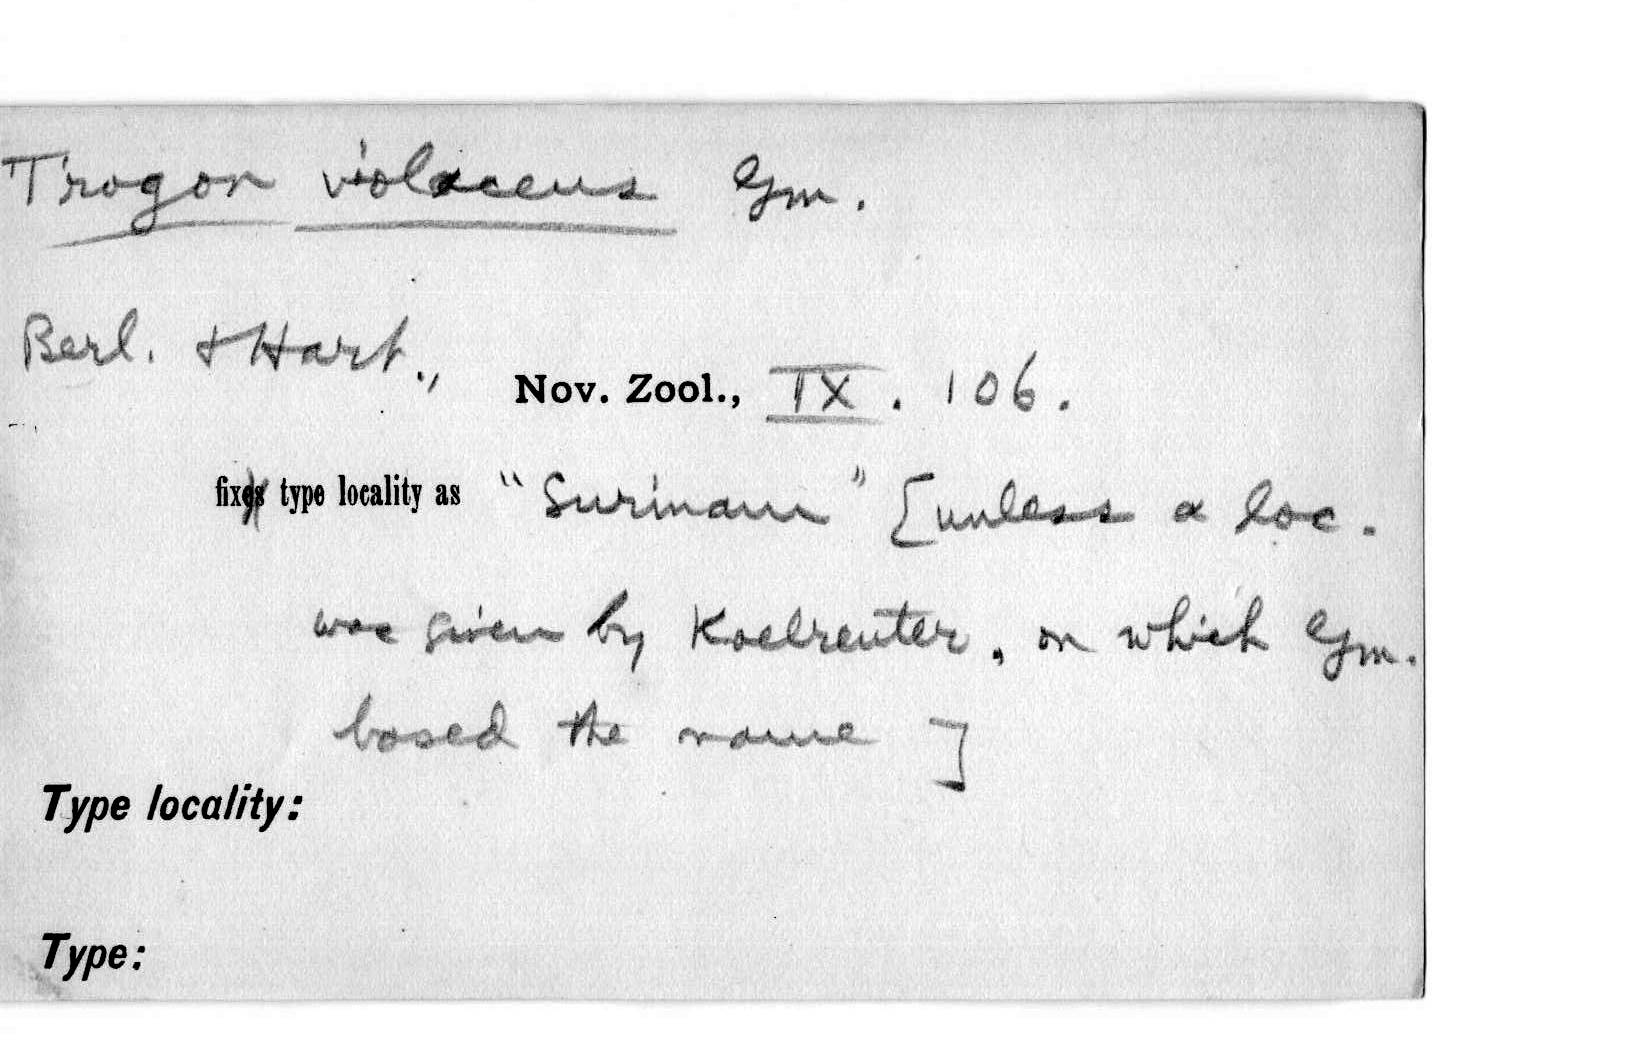 Trogon violaceus Gm.
Berl. & Hart., Nov. Zool., IX. 106.
fixes type locality as "Surinam" [unless a loc.
was given by Koelreuter, on which Gm.
based the name]
Type locality:
Type: